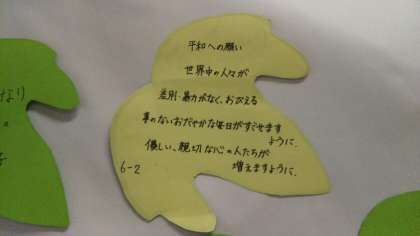 平和への願い
世界中の人々が
差別・暴力がなく、おびえる
事のないおだやかな毎日がすごせます
ように。
優しい、親切な心の人たちが
増えますように。
6-2
なり